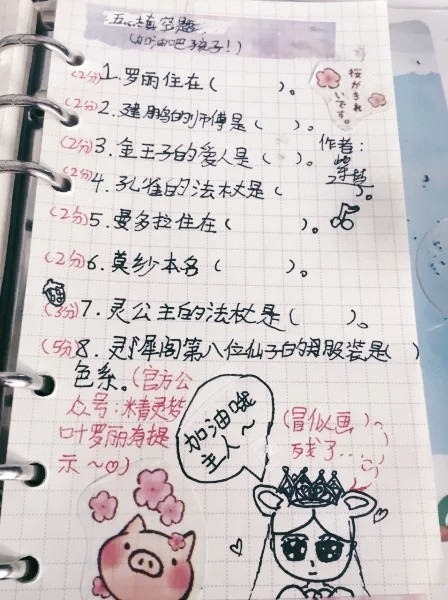 五.填空题
(加油吧孩子!)
桜がきれ
いです。
(2分)1.罗丽住在(      )。
(2分)2.建鹏的师傅是(   )。
(2分)3.金王子的爱人是(   )。
作者:
(2分)4.孔雀的法杖是(
(2分)5.曼多拉住在(      )。
(2分)6.莫纱本名(      )。
(3分)7.灵公主的法杖是(      )。
(5分)8.灵犀阁第八位仙子的服装是(   )
色系。(官方公
众号:精灵梦
叶罗丽有提
示~
加油哦
主人~
(冒似画
残了...